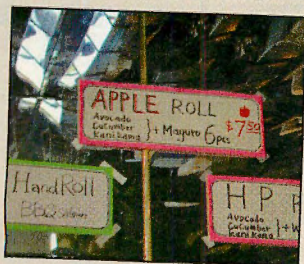 APPLE ROLL
Avocado
Cucumber
Kanikama
}+ Maguro 6pcs
$7.50
Hand Roll
BBQ
H P
Avocado
Cucumber
Kanikama
}+